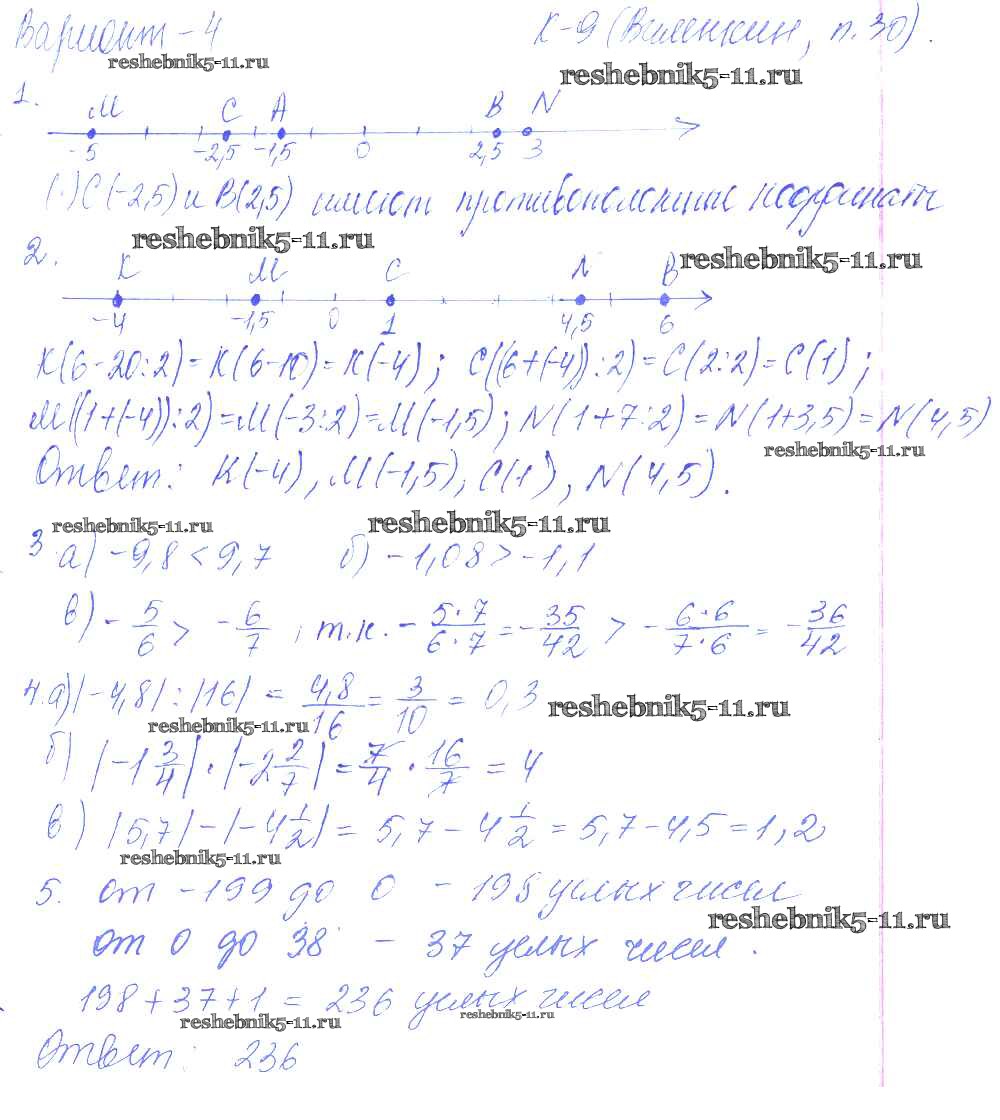 Вариант - 4 К-9 (Виленкин, п. 30).
reshebnik5-11.ru reshebnik5-11.ru
1.
М С А В N
-5 -2,5 -1,5 0 2,5 3
(·) С(-2,5) и В(2,5) имеют противоположные координаты
reshebnik5-11.ru reshebnik5-11.ru
2.
К М С N В
-4 -1,5 0 1 4,5 6
К(6-20:2)=К(6-10)=К(-4); С((6+(-4)):2)=С(2:2)=С(1);
М((1+(-4)):2)=М(-3:2)=М(-1,5); N(1+7:2)=N(1+3,5)=N(4,5)
reshebnik5-11.ru
Ответ: К(-4), М(-1,5), С(1), N(4,5).
reshebnik5-11.ru reshebnik5-11.ru
3 а) -9,8 < 9,7 б) -1,08 > -1,1
в) - 5/6 > - 6/7 , т.к. - 5·7/6·7 = - 35/42 > - 6·6/7·6 = - 36/42
4. а) |-4,8| : |16| = 4,8/16 = 3/10 = 0,3 reshebnik5-11.ru
reshebnik5-11.ru
б) |-1 3/4| · |-2 2/7| = 7/4 · 16/7 = 4
в) |5,7| - |-4 1/2| = 5,7 - 4 1/2 = 5,7 - 4,5 = 1,2
reshebnik5-11.ru
5. от -199 до 0 - 198 целых чисел
reshebnik5-11.ru
от 0 до 38 - 37 целых чисел.
198 + 37 + 1 = 236 целых чисел
reshebnik5-11.ru reshebnik5-11.ru
Ответ: 236